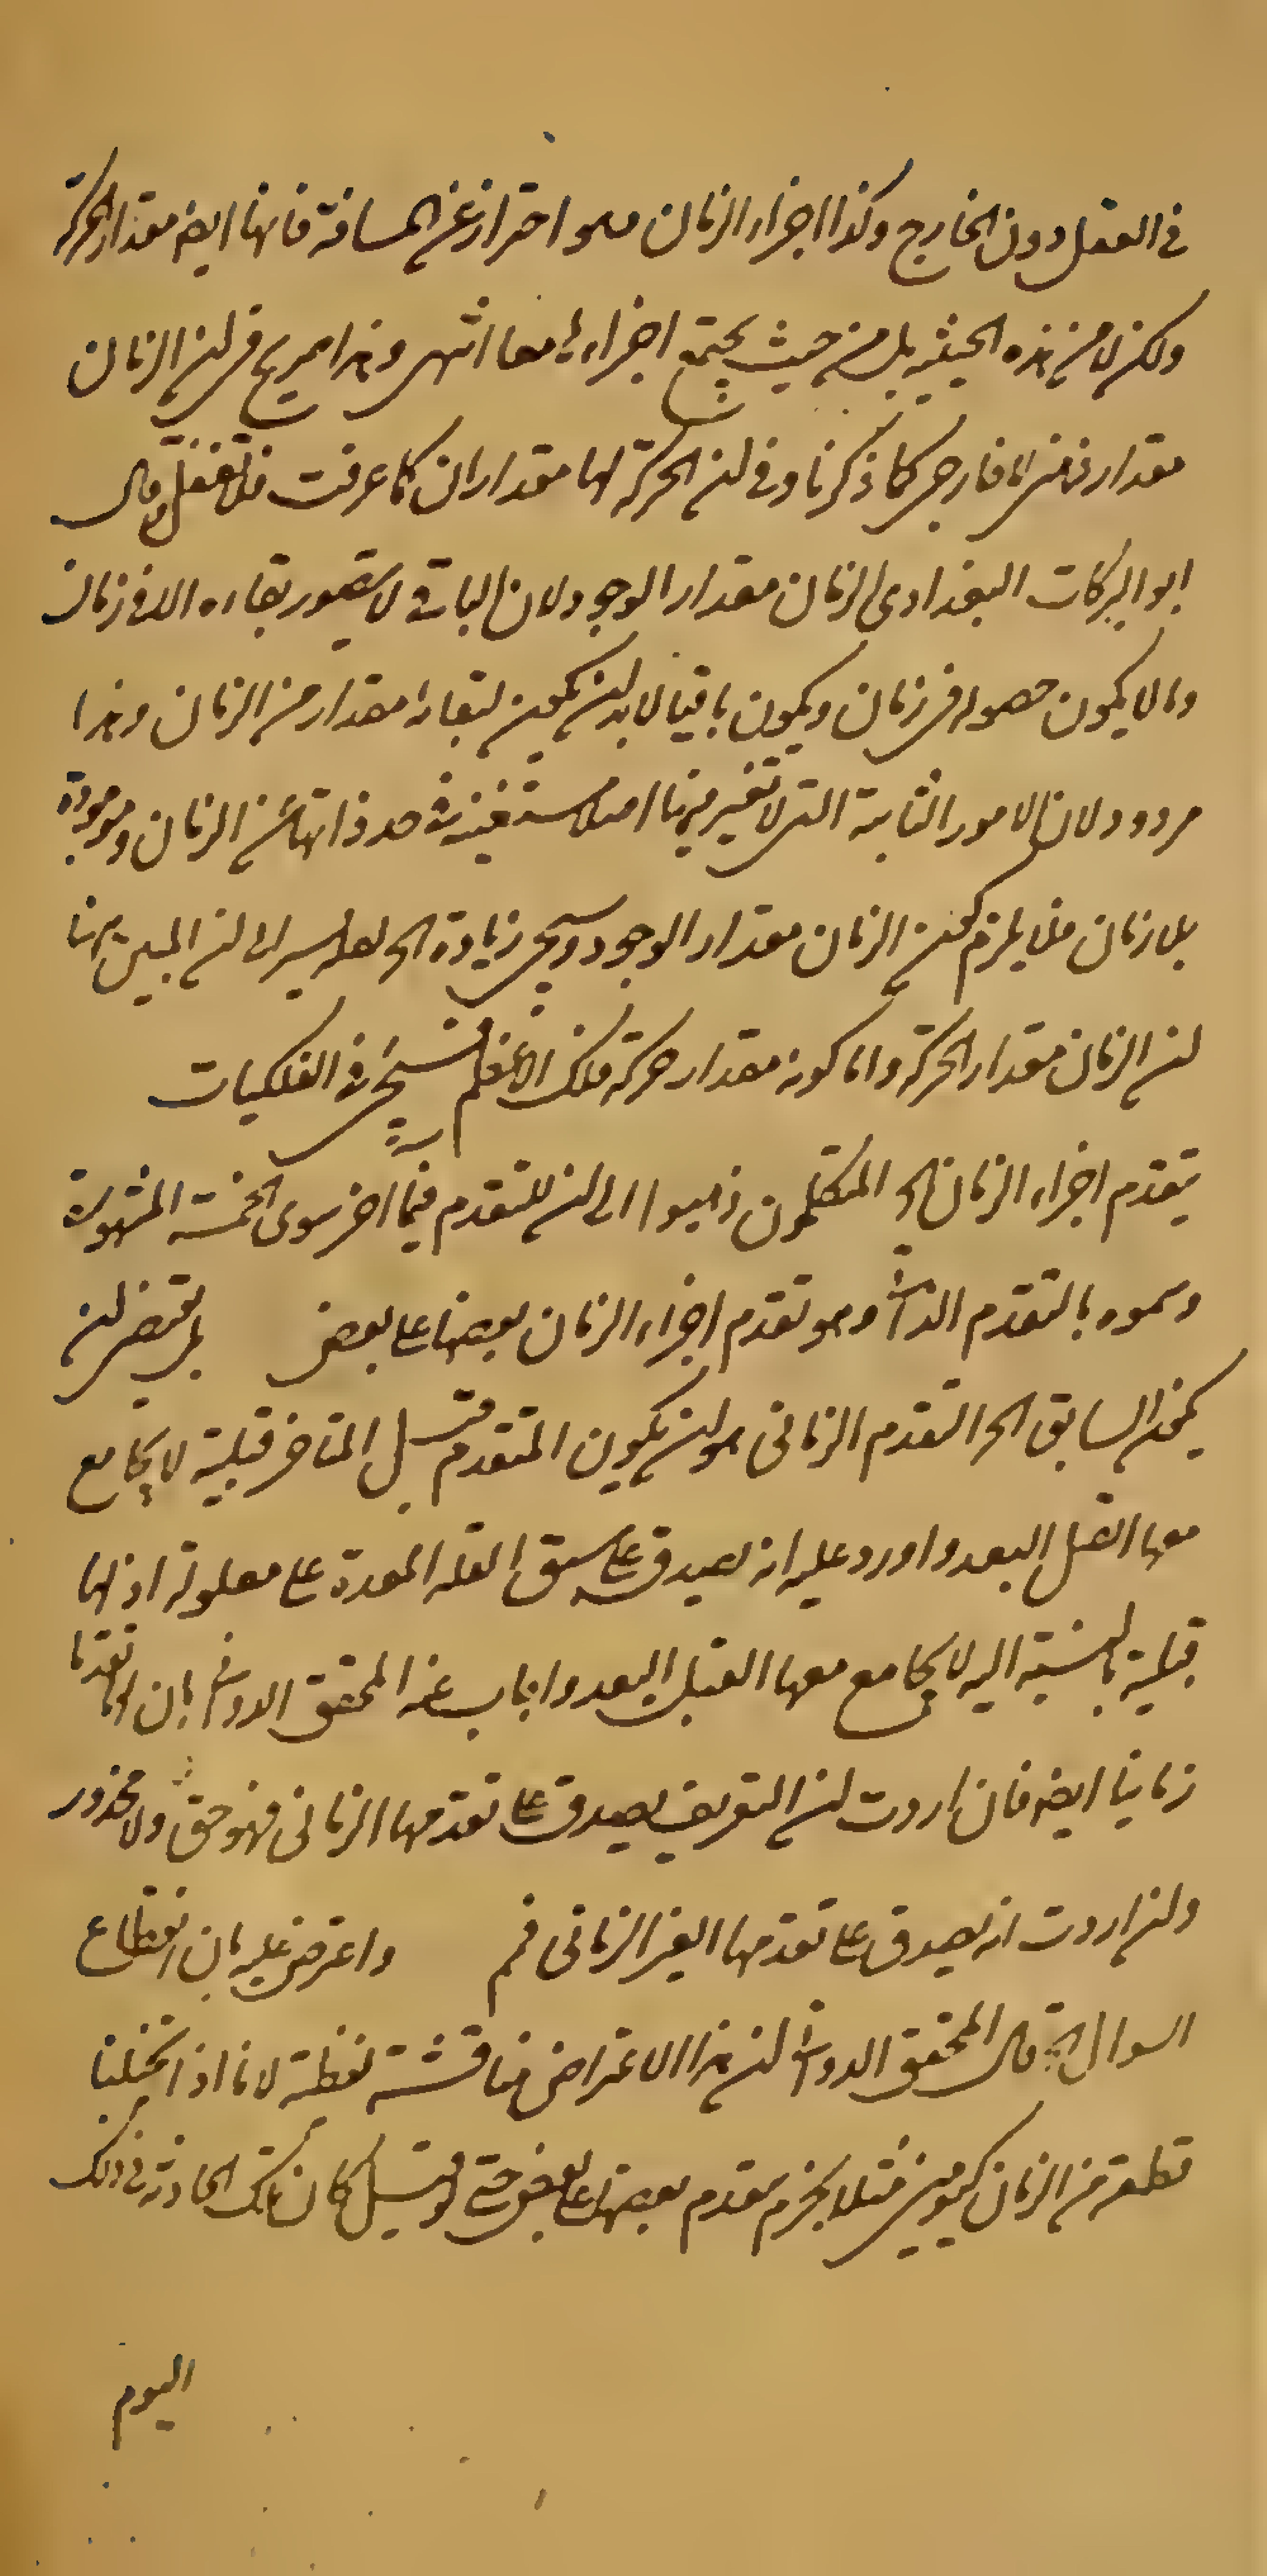 في العقل دون الخارج وكذا اجزاء الزمان وهو احتراز عن المسافة فانها ايضا مقدار الحركة
ولكن لا من هذه الحيثية بل من حيث يجتمع اجزاءها معا انتهى وهذا صريح في ان الزمان
مقدار لها خارجى كما ذكرنا وفي ان الحركة لها مقداران كما عرفت فلا تغفل وقال
ابو البركات البغدادى الزمان مقدار الوجود لان الباقى لا يتصور بقاءه الا فى زمان
وما لا يكون حصوله في زمان ويكون باقيا لابد ان يكون لبقائه مقدار من الزمان وهذا
مردود لان الامور الثابتة التى لا تغير فيها اصلا مستغنية فى حد ذاتها عن الزمان وموجودة
بلا زمان فلا يلزم كون الزمان مقدار الوجود وسيجئ زيادة الى ان المبين هنا
ان الزمان مقدار الحركة واما كونه مقدار حركة فلك الاعظم فسيجئ فى الفلكيات
تقدم اجزاء الزمان الخ المتكلمون ذهبوا الى ان للتقدم قسما اخر سوى الخمسة المشهورة
وسموه بالتقدم الذاتى وهو تقدم اجزاء الزمان بعضها على بعض بل يقتضى ان
يكون السابق الخ التقدم الزمانى هو ان يكون المتقدم قبل المتاخر قبلية لا يجامع
معها القبل البعد واورد عليه انه يصدق على سبق العلة المعدة على معلولها اذ لها
قبلية بالنسبة اليه لا يجامع معها القبل البعد واجاب عنه المحقق الدوانى بان لها تقدما
زمانيا ايضا فان اردت ان التعريف يصدق على تقدمها الزمانى فهو حق ولا محذور
وان اردت انه يصدق على تقدمها الغير الزمانى فم واعترض عليه بان انقطاع
السوال الخ قال المحقق الدوانى ان هذا الاعتراض مناقشة لفظية لانا اذا تخيلنا
قطعة من الزمان كيومين مثلا نجزم بتقدم بعضها على بعض حتى لو قيل كان تلك الحادثة فى ذلك
اليوم